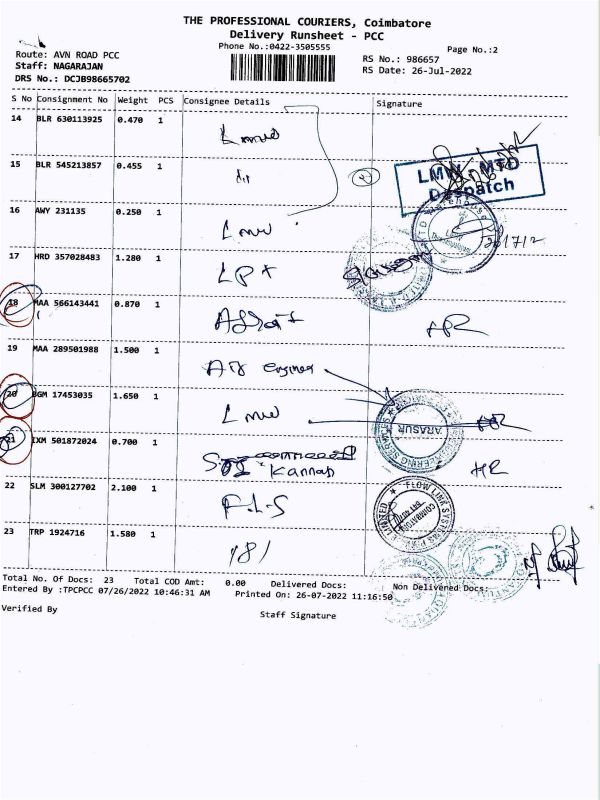 THE PROFESSIONAL COURIERS, Coimbatore
Delivery Runsheet - PCC
Phone No.:0422-3505555
Page No.:2
Route: AVN ROAD PCC
Staff: NAGARAJAN
DRS No.: DCJB98665702
RS No.: 986657
RS Date: 26-Jul-2022
S No Consignment No Weight PCS Consignee Details Signature
14 BLR 630113925 0.470 1 Lmw
15 BLR 545213857 0.455 1
LMW MTD
Despatch
16 AWY 231135 0.250 1 Lmw
17 HRD 357028483 1.280 1 LPT
18 MAA 566143441 0.870 1
19 MAA 289501988 1.500 1 Air Engineer
20 BGM 17453035 1.650 1 Lmw
ARASUR
21 IXM 501872024 0.700 1 Kannan HR
22 SLM 300127702 2.100 1 F.L.S
FLOW LINK SYSTEMS
COIMBATORE
LIMITED
23 TRP 1924716 1.580 1 181
Total No. Of Docs: 23 Total COD Amt: 0.00 Delivered Docs: Non Delivered Docs:
Entered By :TPCPCC 07/26/2022 10:46:31 AM Printed On: 26-07-2022 11:16:50
Verified By
Staff Signature